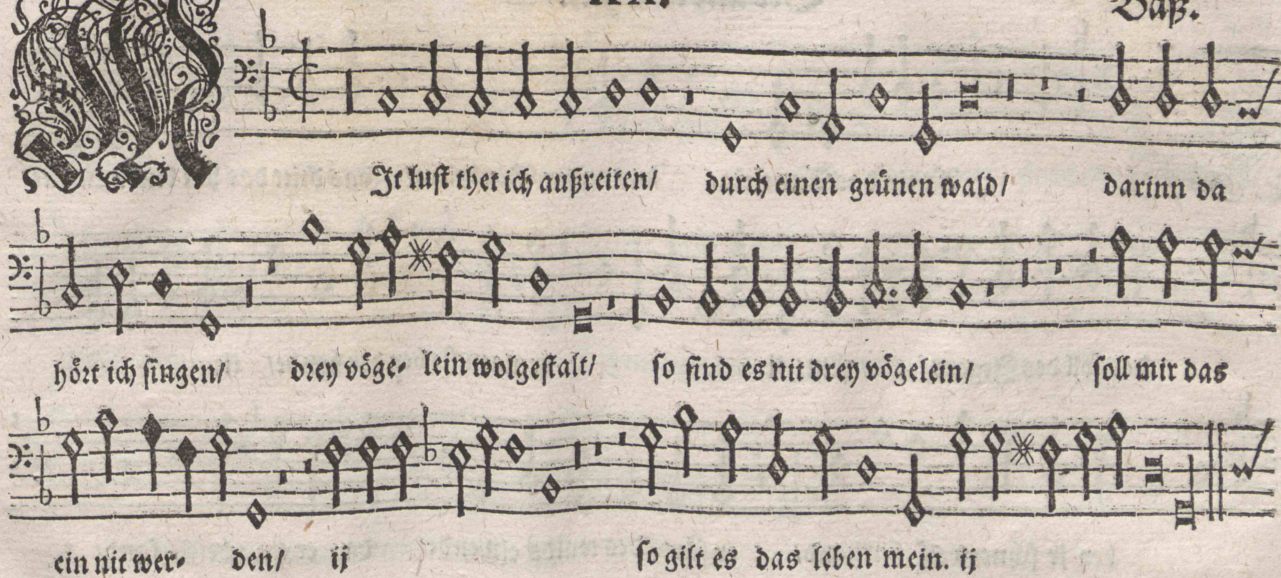 Baß.
Jr lust thet ich außreiten/ durch einen grünen wald/ darinn da
hört ich singen/ drey vöge- lein wolgestalt/ so sind es nit drey vögelein/ soll mir das
ein nit wer- den/ ij so gilt es das leben mein. ij